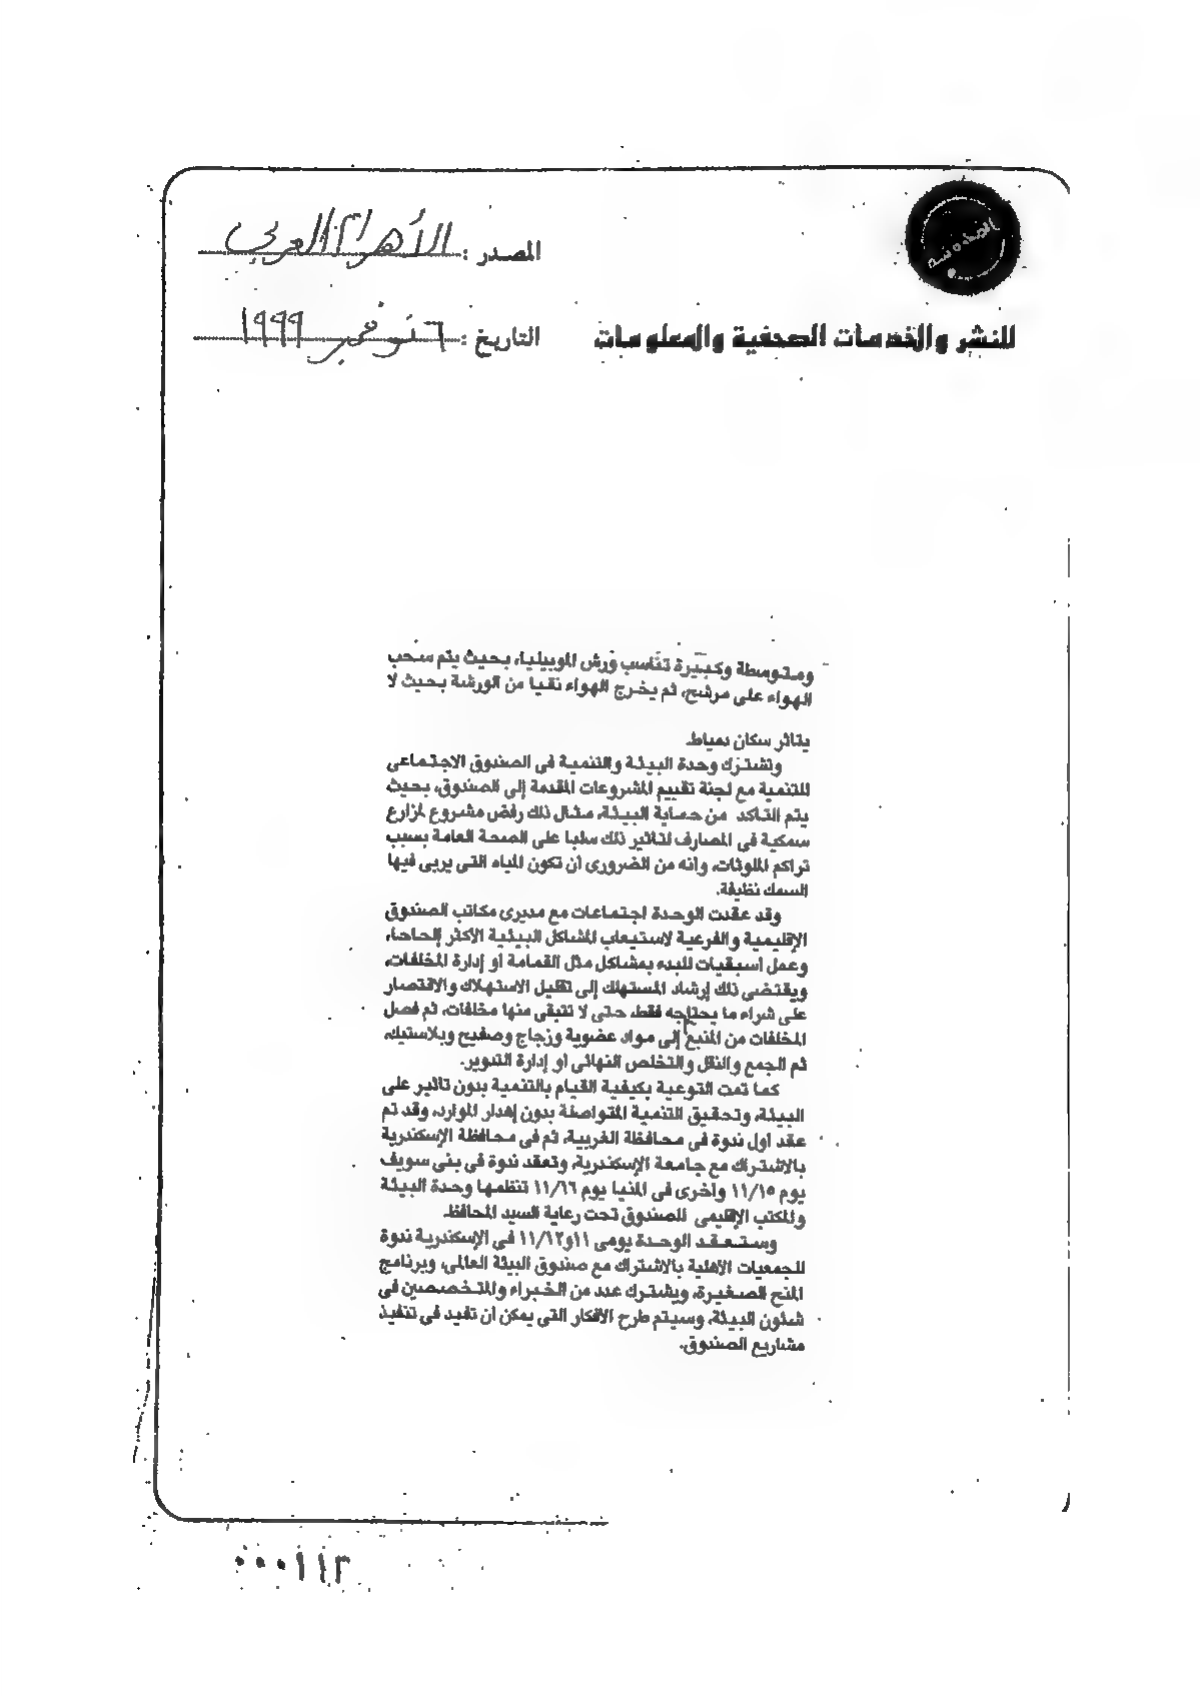 المصدر : الأهرام العربي
للنشر والخدمات الصحفية والمعلومات
التاريخ : ٦ نوفمبر ١٩٩٩
ومتوسطة وكبيرة تناسب ورش الموبيليا، بحيث يتم سحب
الهواء على مرشح، ثم يخرج الهواء نقيا من الورشة بحيث لا
يتاثر سكان دمياط.
وتشترك وحدة البيئة والتنمية فى الصندوق الاجتماعى
للتنمية مع لجنة تقييم المشروعات المقدمة إلى الصندوق، بحيث
يتم التاكد من حماية البيئة، مثال ذلك رفض مشروع لمزارع
سمكية فى المصارف لتاثير ذلك سلبا على الصحة العامة بسبب
تراكم الملوثات، وانه من الضرورى ان تكون المياه التى يربى فيها
السمك نظيفة.
وقد عقدت الوحدة اجتماعات مع مديرى مكاتب الصندوق
الإقليمية والفرعية لاستيعاب المشاكل البيئية الأكثر إلحاحا،
وعمل اسبقيات للبدء بمشاكل مثل القمامة او إدارة المخلفات،
ويقتضى ذلك إرشاد المستهلك إلى تقليل الاستهلاك والاقتصار
على شراء ما يحتاجه فقط، حتى لا تتبقى منها مخلفات، ثم فصل
المخلفات من المنبع إلى مواد عضوية وزجاج وصفيح وبلاستيك،
ثم الجمع والنقل والتخلص النهائى او إدارة التدوير.
كما تمت التوعية بكيفية القيام بالتنمية بدون تاثير على
البيئة، وتحقيق التنمية المتواصلة بدون إهدار الموارد، وقد تم
عقد اول ندوة فى محافظة الغربية، ثم فى محافظة الإسكندرية
بالاشتراك مع جامعة الإسكندرية، وتعقد ندوة فى بنى سويف
يوم ١١/١٥ واخرى فى المنيا يوم ١١/١٦ تنظمها وحدة البيئة
والمكتب الإقليمى للصندوق تحت رعاية السيد المحافظ.
وستعقد الوحدة يومى ١١و١١/١٢ فى الإسكندرية ندوة
للجمعيات الأهلية بالاشتراك مع صندوق البيئة العالمى، وبرنامج
المنح الصغيرة، ويشترك عدد من الخبراء والمتخصصين فى
شئون البيئة، وسيتم طرح الأفكار التى يمكن ان تفيد فى تنفيذ
مشاريع الصندوق.
٠٠٠١١٣